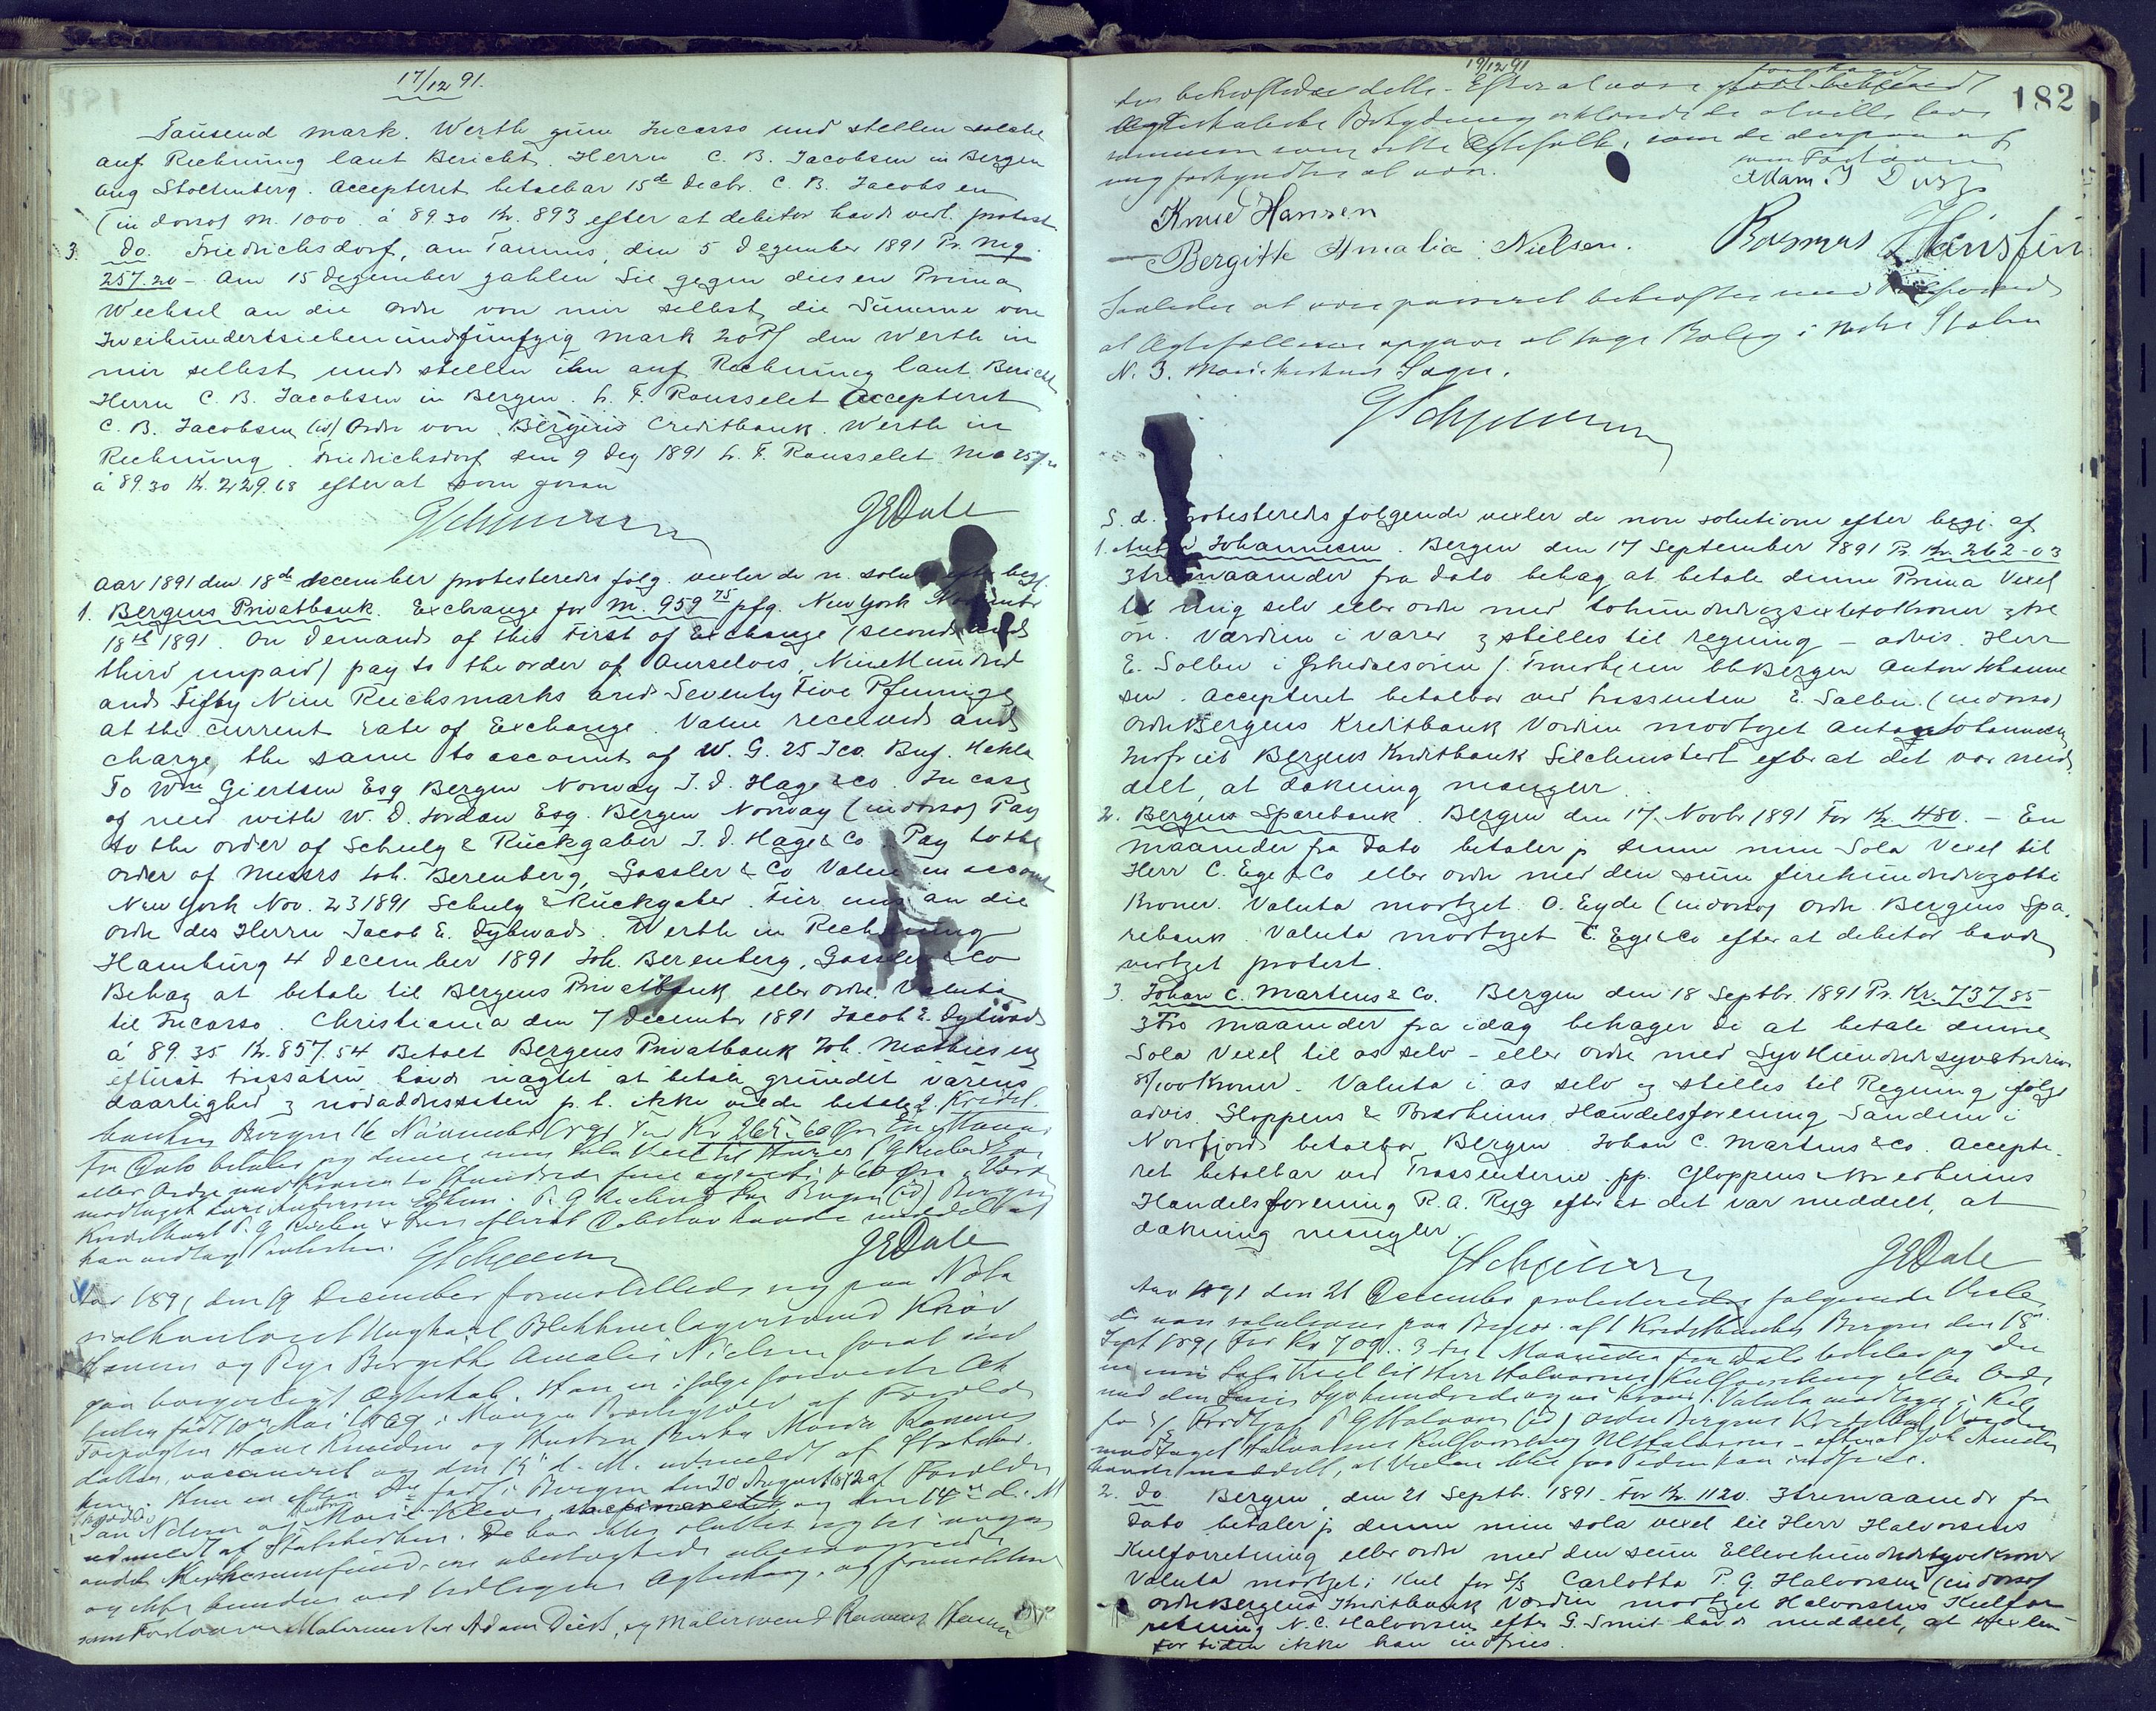 17/12 91.
Tausend Mark. Werth zum Incasso und stellen solche
auf Rechnung laut Bericht. Herrn C. B. Jacobsen in Bergen
Aug Stoltenberg. Accepteret betalbar 15de Decbr. C. B. Jacobsen
(in dorso) M. 1000 á 89.30 Kr. 893 efter at debitor havde vedt. protest
3. Do. Friedrichsdorf, am Taunus, den 5 Dezember 1891 Pr. Mq.
257.20 - Am 15 Dezember zahlen Sie gegen diesen Prima
Wechsel an die Ordre von mir selbst die Summe von
Zweihundertsiebenundfünfzig Mark 20 Pf den Werth in
mir selbst und stellen ihn auf Rechnung laut Bericht
Herrn C. B. Jacobsen in Bergen. L. F. Rousselet Accepteret
C. B. Jacobsen (id) Ordre von Bergens Creditbank. Werth in
Rechnung. Friedrichsdorf den 9 Dez 1891 L. F. Rousselet
á 89.30 Kr. 229.68 efter at som foran
JEDale
Aar 1891 den 18de December protesteredes følg. vexler de n. solut. efter begj.
1. Bergens Privatbank. Exchange for M. 959 75 pfg. New York November
18th 1891. On Demand of this First of Exchange (second and
third unpaid) pay to the order of Ourselves, Nine Hundred
and Fifty Nine Reichsmarks and Seventy Five Pfennige
at the current rate of Exchange. Value received and
charge the same to account of W. G. 25 Hekla
To Wm Giertsen Esq Bergen Norway J. D. Hage & Co. In case
of need with W. D. Jordan Esq. Bergen Norway (in dorso) Pay
to the order of Schulz & Rückgaber J. D. Hage & Co. Pay to the
order of Messrs Joh. Berenberg, Gossler & Co Value in account
New York Nov. 23 1891 Schulz & Rückgaber. Für uns an die
Ordre des Herrn Jacob E. Dybwad. Werth in Rechnung
Hamburg 4 December 1891 Joh. Berenberg, Gossler & Co
Behag at betale til Bergens Privatbank eller ordre. Valuta
til Incasso. Christiania den 7 December 1891 Jacob E. Dybwad
á 89.35 Kr. 857.54 Betalt Bergens Privatbank Joh. Mathiesen
efterat trassaten havde nægtet at betale grundet varens
daarlighed og nödadressaten p. t. ikke vilde betale 2. Kredit
banken Bergen 16 November 1891 For Kr. 265.60 Øre En Maaned
fra Dato betaler jeg denne min Sola Vexel til Herrer
eller Ordre med Kroner to Hundrede fem og seksti & 60 Øre
JEDale
Aar 1891 den 19 December fremstillede sig paa Nota
rialkontoret Ungkarl, Blikkenslagersvend Knud
Hansen og Pige Bergitte Amalie Nielsen forat ind
gaa borgerligt Ægteskab. Han er ifølge foreviste At
tester født 10de Mai 1869 i Manger Præstegjeld af Forældre
Hans Knudsen og Hustru
datter, vaccineret og den 15de d. M. udmeldt af Statskir
ken. Hun er efter Do født i Bergen den 20 August 1872 af Forældre
Nilsen og Hustru og den 14de d. M
udmeldt af Statskirken. De har ikke sluttet sig til nogen
andet Kirkesamfund, er ubeslægtede ubesvogrede
og ikke bundne ved tidligere Ægteskab, og fremstillede
som Forlovere Malermester Adam Duus, og Malersvend Rasmus Hansen
182
19/12 91
der bekræftede dette. Efter at være foreholdt
Ægteskabets Betydning erklærede de at ville leve
sammen som rette Ægtefolk, som de derpaa af
mig forkyndtes at være.
som Forlovere
Adam. J Duus
Knud Hansen
Bergitte Amalia Nielsen.
Rasmus
Saaledes at være passeret bekræftes med Tilføiende
at Ægtefællerne opgave at tage Bolig i
N. 3. Mariekirkens Sogn.
S. d. protesteredes følgende vexler de non solutione efter begj. af
1. Anton Johannesen. Bergen den 17 September 1891 Pr. Kr. 262-03
3 tre maaneder fra dato behag at betale denne Prima Vexel
til mig selv eller ordre med tohundredeogsextitokroner & tre
öre. Værdien i varer & stilles til regning - advis. Herr
E. Solbu i Trondhjem Bergen Anton Johanne
sen. Accepteret betalbar ved trassenten E. Solbu. (in dorso)
Ordre Bergens Kreditbank Værdien modtaget Anton Johannesen
Bergens Kreditbank efter at det var med
delt, at dækning mangler.
2. Bergens Sparebank. Bergen den 17. Novbr 1891 For Kr. 480. - En
maaneder fra dato betaler jeg denne min Sola Vexel til
Herr C. Ege & Co eller ordre med den sum firehundredeogotti
Kroner. Valuta modtaget. O. Eyde (in dorso) Ordre Bergens Spa
rebank. Valuta modtaget C. Ege & Co efter at debitor havde
vedtaget protest.
3. Johan C. Martens & Co. Bergen den 18 Septbr. 1891 Pr. Kr. 737 85
3 Tre maaneder fra idag behager De at betale denne
Sola Vexel til os selv - eller ordre med Syvhundredesyvogtredive
85/100 Kroner. Valuta i os selv og stilles til Regning ifølge
advis. Gloppens & Bredheims Handelsforening Sandene i
Nordfjord betalbar Bergen Johan C. Martens & Co. Accepte
ret betalbar ved Trassenterne. pp. Gloppens & Bredheims
Handelsforening R. A. Ryg efter at det var meddelt, at
dækning mangler.
JEDale
Aar 1891 den 21 December protesteredes følgende Vexler
de non solutione paa Begjær. af 1 Kreditbanken Bergen den 18de
Sept 1891 For Kr 709. 3 tre Maaneder fra Dato betaler jeg den
ne min Sola Vexel til Herr Halvorsens Kulforretning eller Ordre
med den Sum Syvhundrede og ni Kroner. Valuta modtaget i Kul
for S/S (id) ordre Bergens Kreditbank Værdien
modtaget Halvorsens Kulforretning - efterat
havde meddelt, at Vexlen ikke for Tiden kan indfries.
2. Do Bergen, den 21 Septbr. 1891. For Kr. 1120. 3 tre maaneder fra
Dato betaler jeg denne min sola vexel til Herr Halvorsens
Kulforretning eller ordre med den sum Ellevehundredetyvekroner
Valuta modtaget i Kul for S/S Carlotta P. G. Halvorsen (in dorso)
ordre Bergens Kreditbank Værdien modtaget Halvorsens Kulfor
retning N. C. Halvorsen efter G. Smit havde meddelt, at vexlen
for tiden ikke kan indfries.